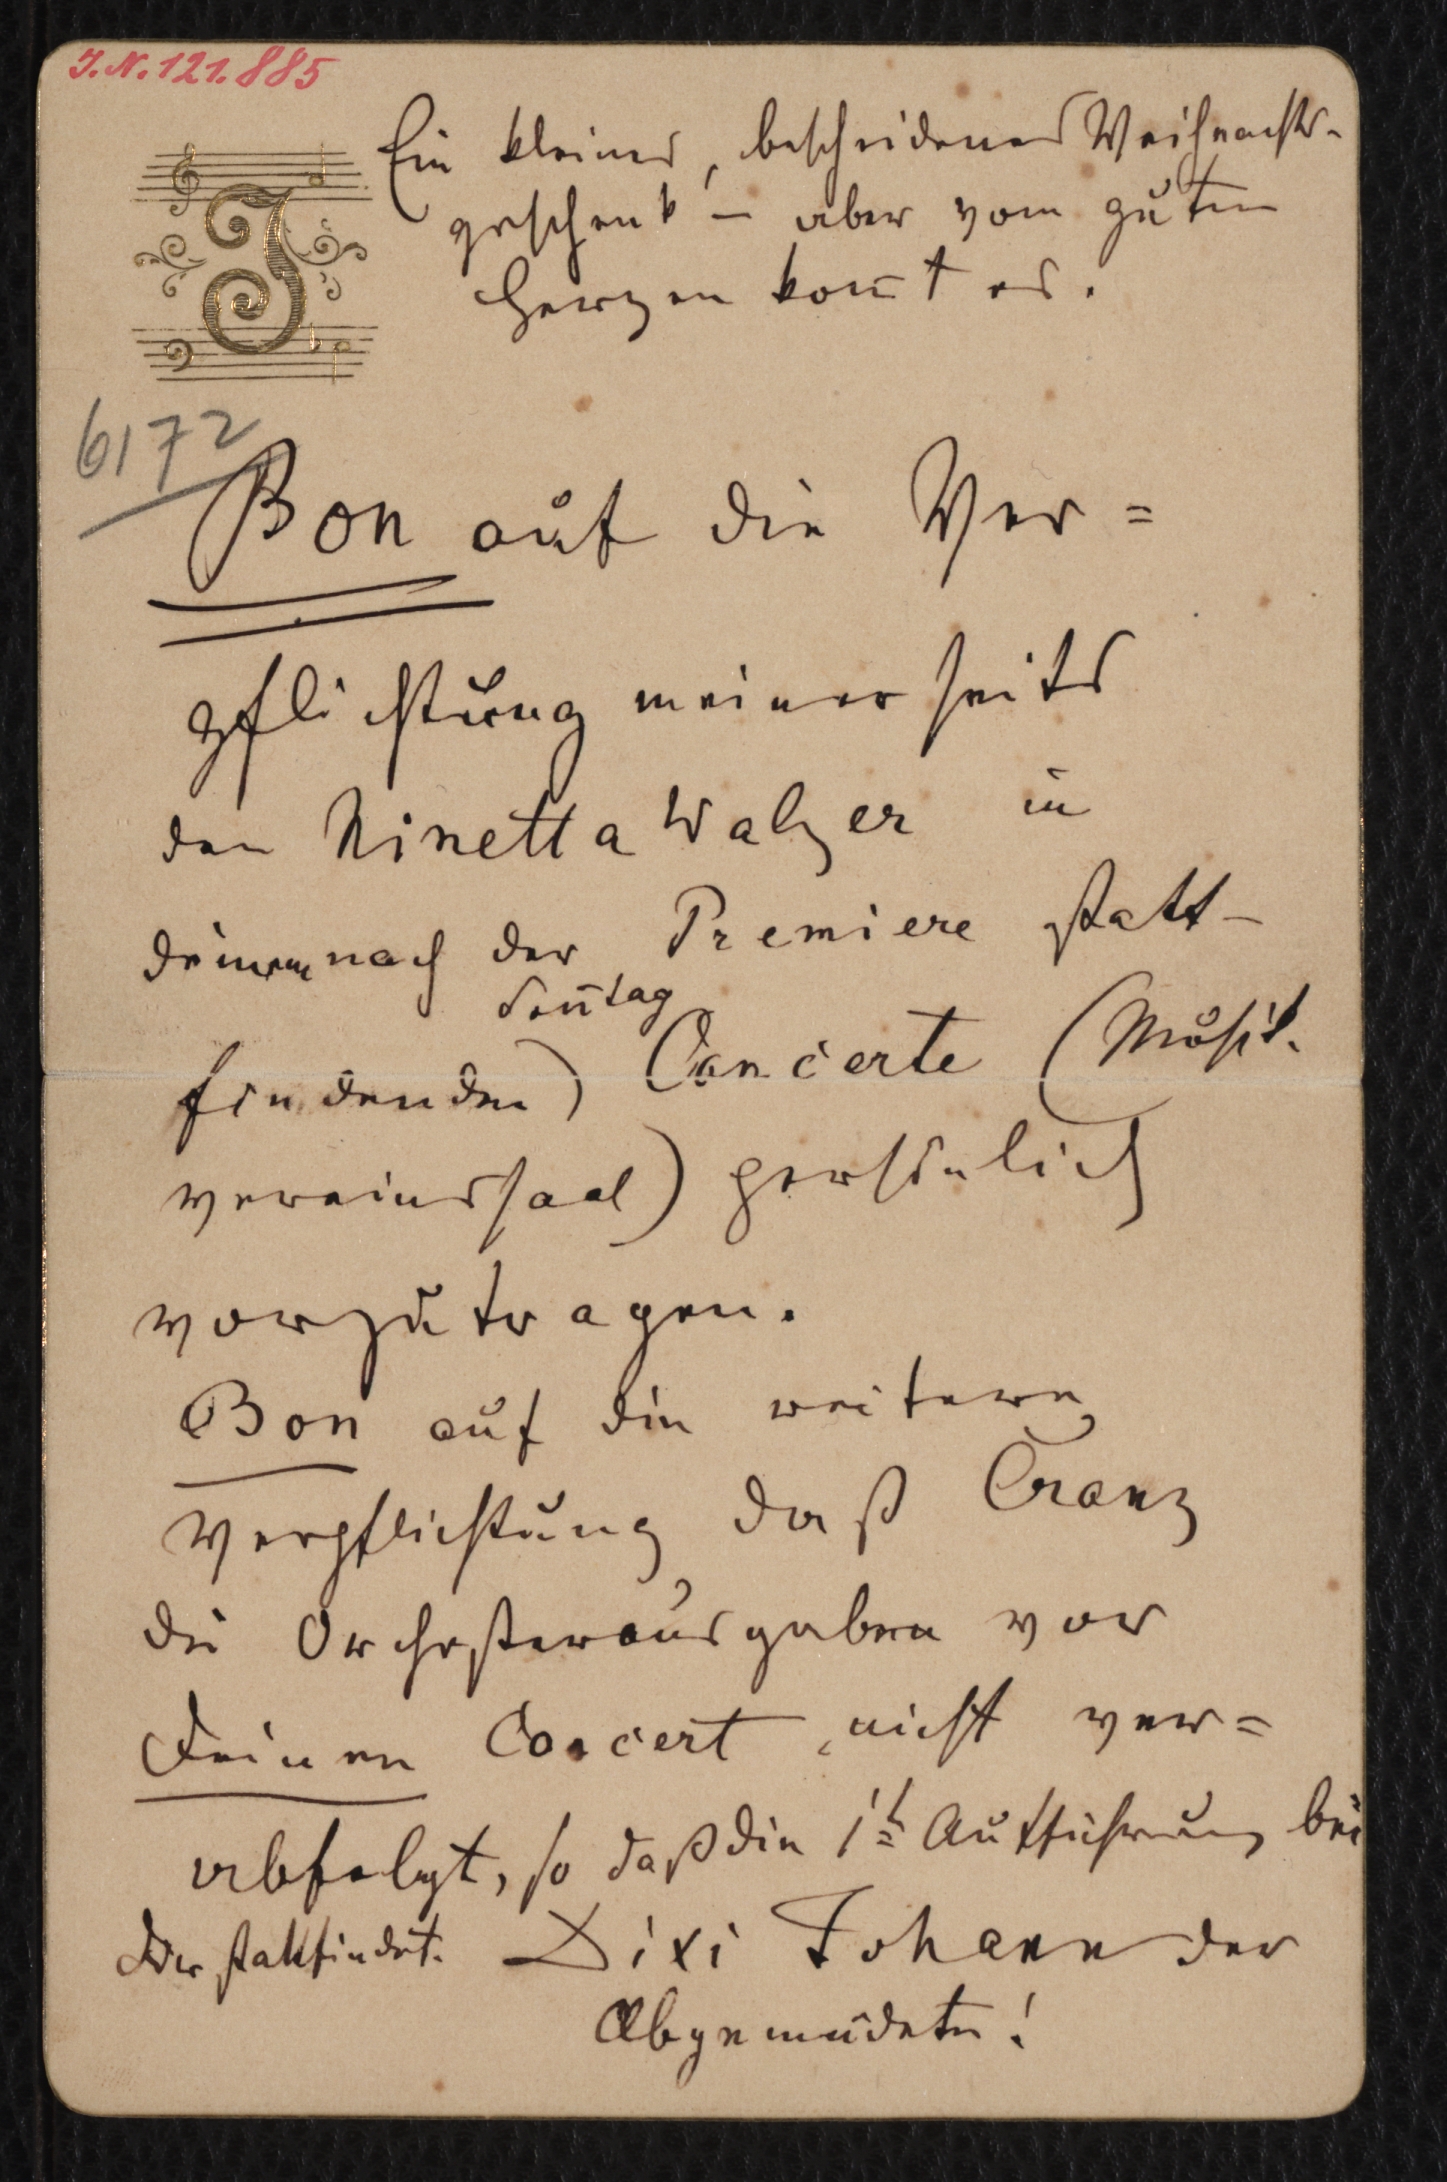 I.N. 121.885
Ein kleines, bescheidenes Weihnachts-
geschenk – aber vom guten
Herzen kom̄t es.
6172
Bon auf die Ver=
pflichtung meinerseits
den Ninetta Walzer in
deinem nach der Premiere statt-
Son̄tag
findenden) Concerte (Musik-
vereinssaal) persönlich
vorzutragen.
Bon auf die weitere
Verpflichtung, daß Cranz
die Orchesterausgaben vor
Deinen Concert nicht ver=
abfolgt, so daß die 1t Aufführung bei
Dir stattfindet. Dixi Johann der
Abgemüdete!